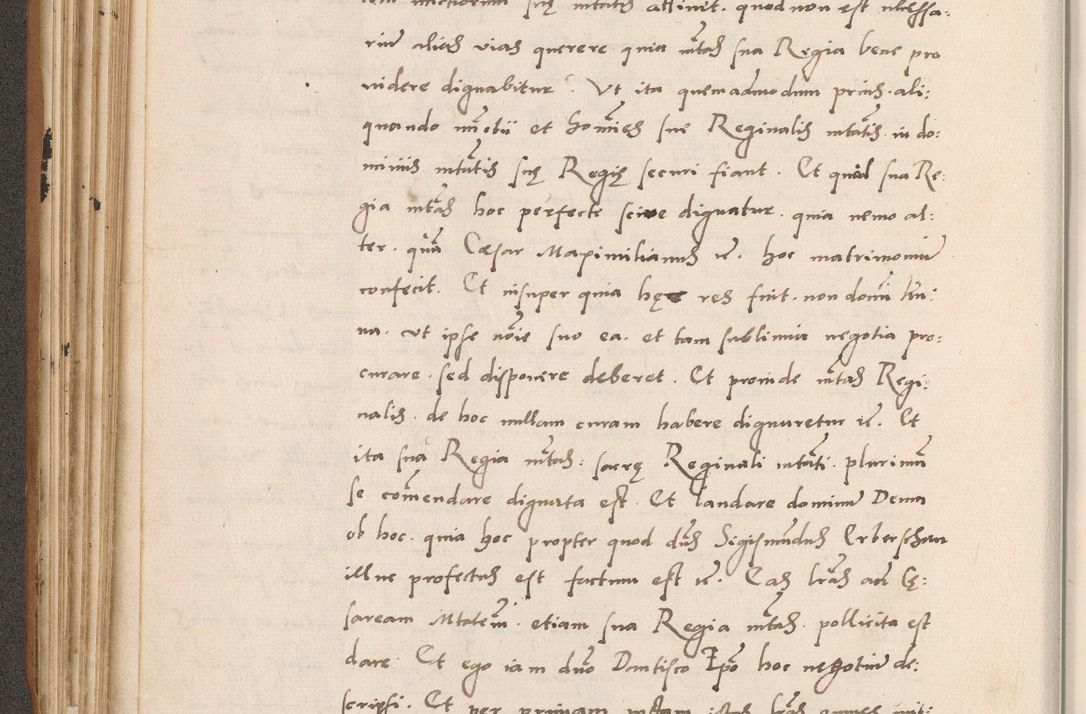 suę mtatis attinet. quod non est necessa:
riuʒ alias vias querere quia mtas sua Regia bene pro
videre dignabitur. Vt ita quemadmodum prius. ali:
quando nuncii et homines sue Reginalis mtatis in do:
miniis mtatis suę Regię securi fiant. Et quod sua Re:
gia mtas hoc perfecte scire dignatur. quia nemo al:
ter. quam Cæsar Maximilianus ꝛc. hoc matrimoniuʒ
confecit. Et insuper quia hęc res fuit. non domini
na. vt ipse noie suo ea. et tam sublimia negotia pro:
curare. sed disponere deberet. Et proinde mtas Regi:
nalis. de hoc nullam curam habere dignaretur ꝛc. Et
ita sua Regia mtas: sacrę Reginali mtati. plurimum
se comendare dignata est. Et laudare dominuʒ Deum
ob hoc. quia hoc propter quod dus Sigismundus Erberschan
illuc profectus est factum est ꝛc. Eas lras ad Cę:
saream Mtatem. etiam sua Regia mtas. pollicita est
dare. Et ego iam duo Dantisco Epo hoc negotiuʒ de:
scripsi. Et per primam mtam istas lras omnes